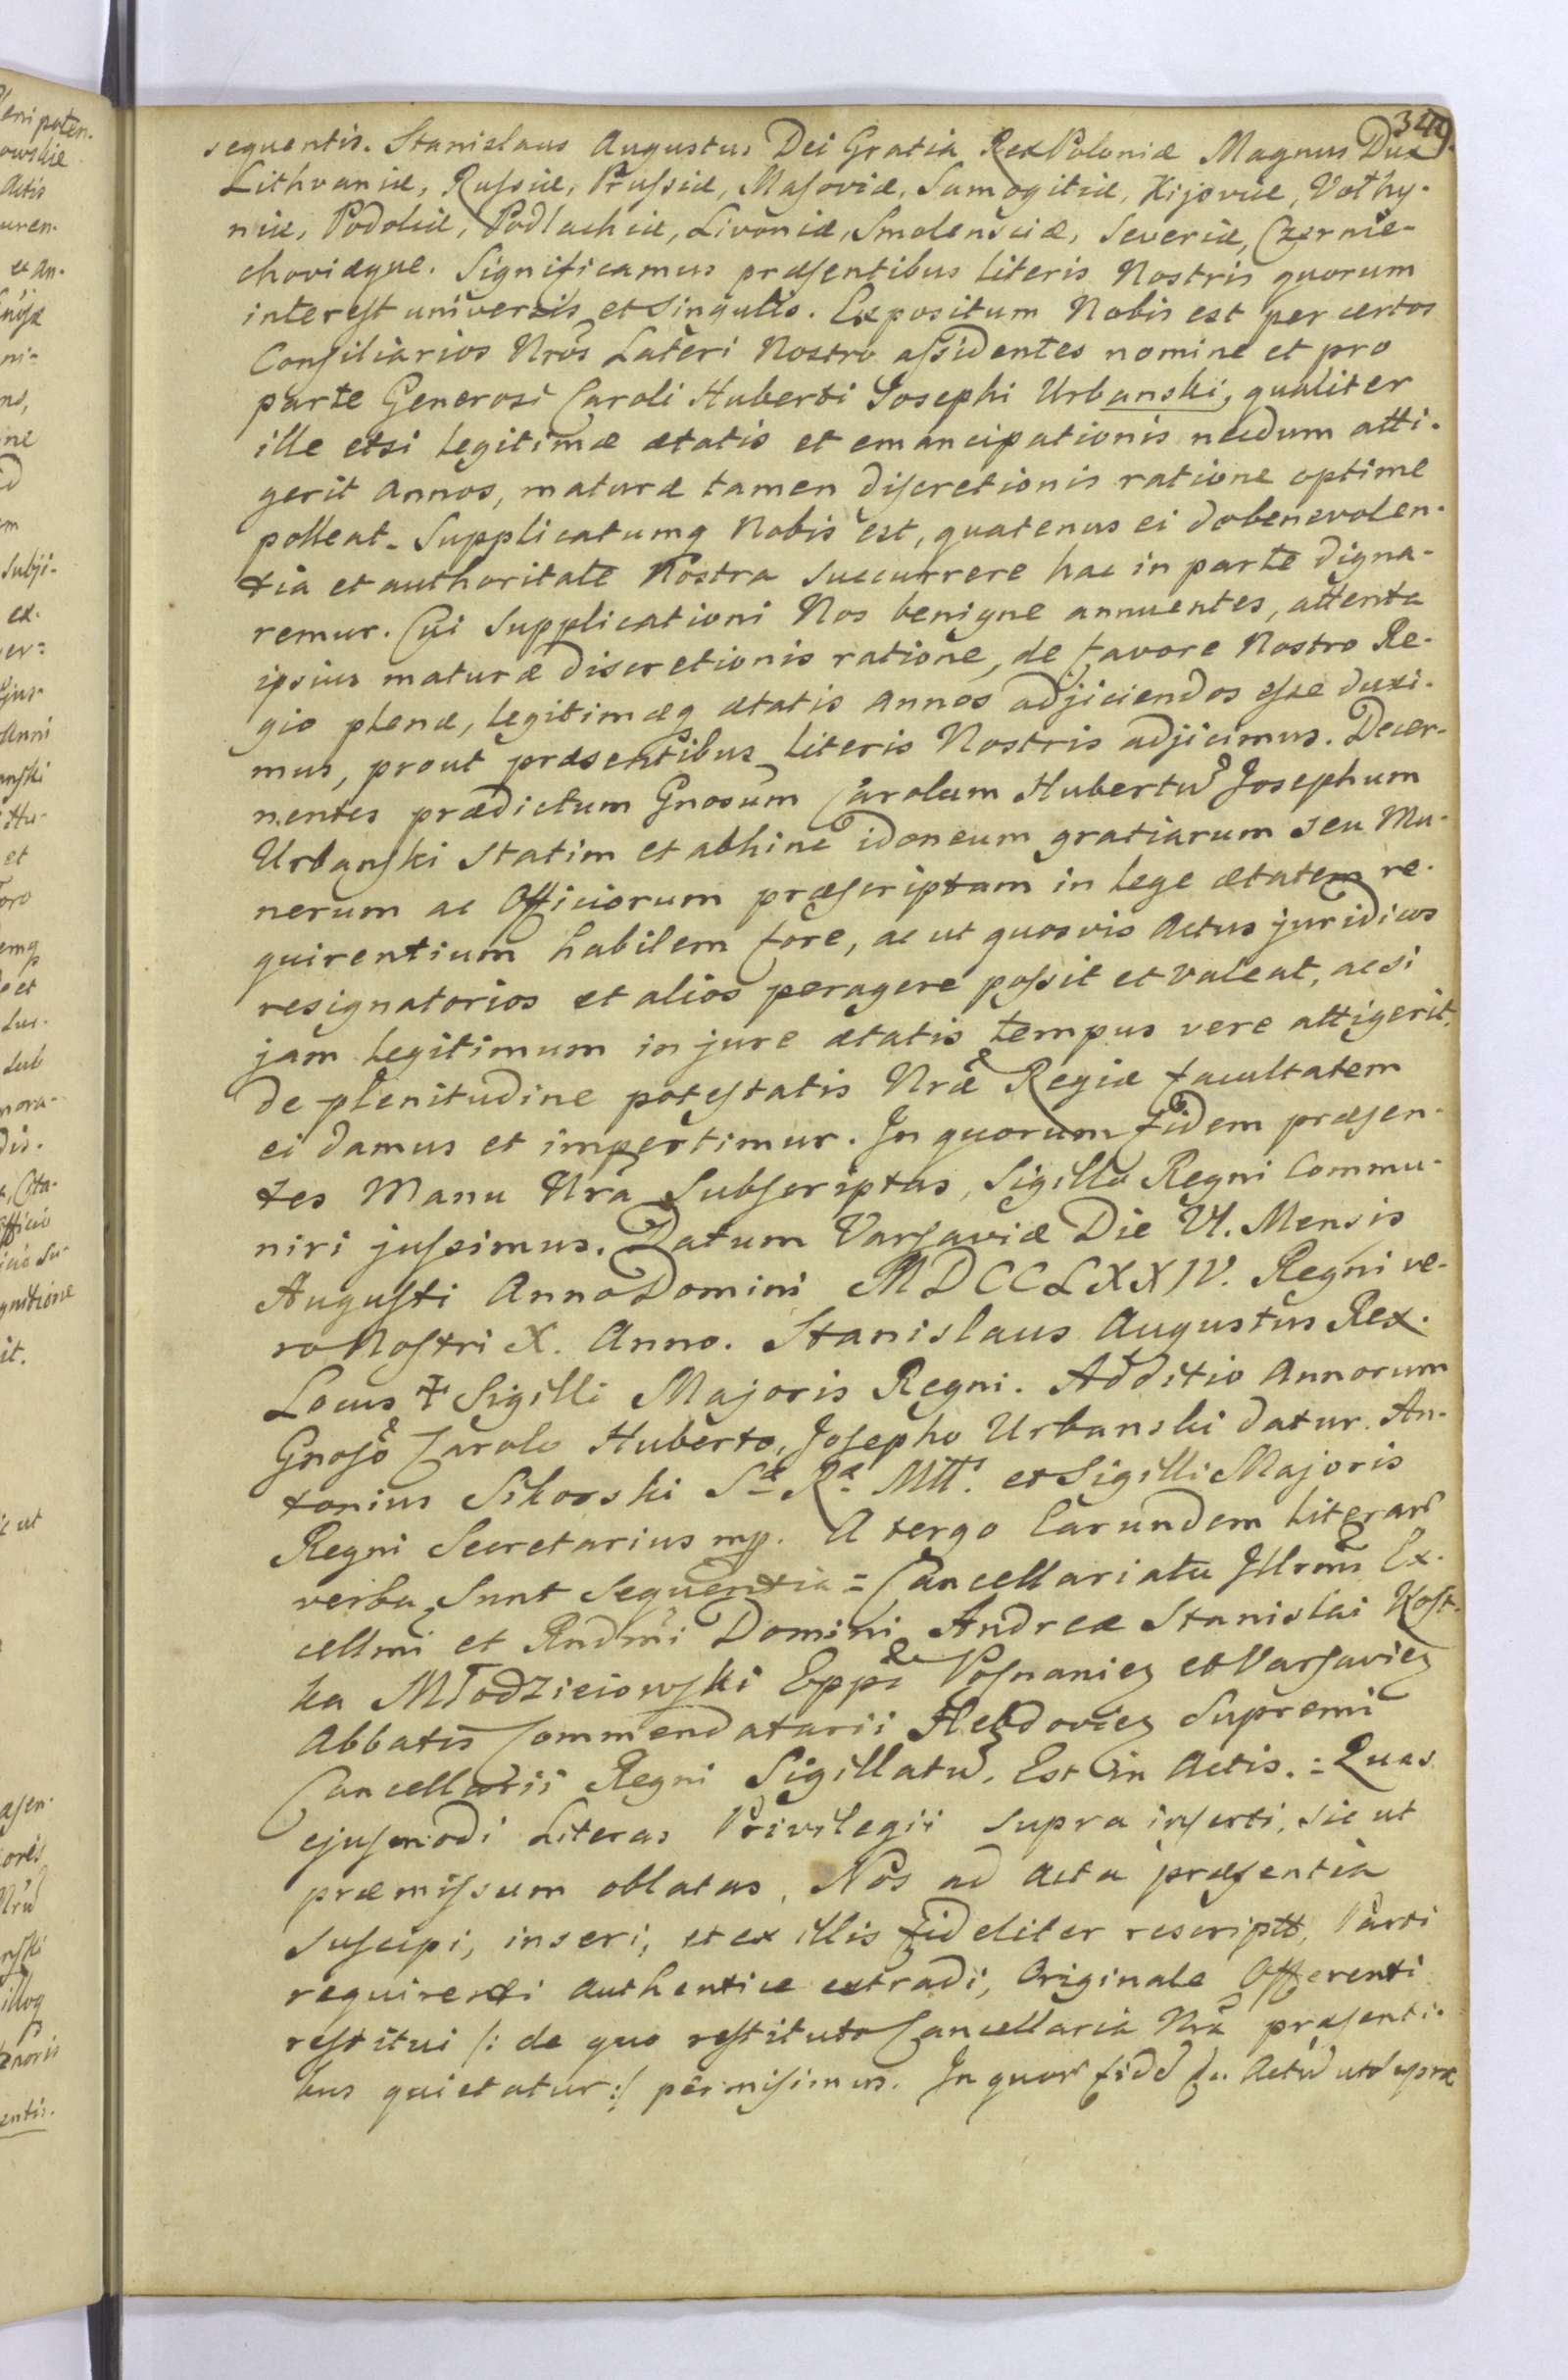 349
sequentis. Stanislaus Augustus Dei Gratia Rex Poloniæ Magnus Dux
Lithvaniæ, Russiæ, Prussiæ, Masoviæ, Samogitiæ, Kijoviæ, Volhy-
niæ, Podoliæ, Podlachiæ, Livoniæ, Smolensciæ, Severiæ, Czernie-
choviæque. Significamus præsentibus literis Nostris quorum
interest universis et singulis. Expositum Nobis est per certos
Consiliarios Nros Lateri Nostro assidentes nomine et pro
parte Generosi Caroli Huberti Josephi Urbanski, qualiter
ille etsi legitimæ ætatis et emancipationis necdum atti-
gerit annos, maturæ tamen discretionis ratione optime
polleat. Supplicatumq Nobis est, quatenus ei de benevolen-
tia et authoritate Nostra succurrere hac in parte digna-
remur. Cui Supplicationi Nos benigne annuentes, attenta
ipsius maturæ discretionis ratione, de favore Nostro Re-
gio plenæ, legitimæq ætatis annos adjiciendos esse duxi-
mus, prout præsentibus literis Nostris adjicimus. Decer-
nentes prædictum Gnosum Carolum Hubertũ Josephum
Urbanski statim et abhinc idoneum gratiarum seu Mu-
nerum ac Officiorum præscriptam in lege ætatem re-
quirentium habilem fore, ac ut quosvis Actus juridicos
resignatorios et alios peragere possit et valeat, acsi
jam legitimum in jure ætatis tempus vere attigerit,
de plenitudine potestatis Nræ Regiæ facultatem
ei damus et impertimur. In quorum fidem præsen-
tes Manu Nra Subscriptas, Sigillo Regni Commu-
niri jussimus. Datum Varsaviæ Die VI. Mensis
Augusti Anno Domini MDCCLXXIV. Regni ve-
ro Nostri X. Anno. Stanislaus Augustus Rex.
Locus ✝ Sigilli Majoris Regni. Additio Annorum
Gnoso Carolo Huberto, Josepho Urbanski datur. An-
tonius Sikorski Sæ Ræ Mtt. et Sigilli Majoris
Regni Secretarius mp. A tergo Earundem literarũ
verba Sunt Sequentia = Cancellariatu Illrmi Ex-
cellmi et Rndmi Domini Andreæ Stanislai Kost-
ka Młodzieiowski Eppi Posnanien et Varsavien
Abbatis Commendatarii Hebdovien Supremi
Cancellarii Regni Sigillatũ. Est in Actis. = Quas
ejusmodi Literas Privilegii supra inserti, sic ut
præmissum oblatas, Nos ad Acta præsentia
suscipi, inseri, et ex illis fideliter rescriptt, Parti
requirenti authentice extradi, Originale Offerenti
restitui /: de quo restituto Cancellaria Nra præsenti-
bus quietatur :/ permisimus. In quor fidd Actũ ut supra